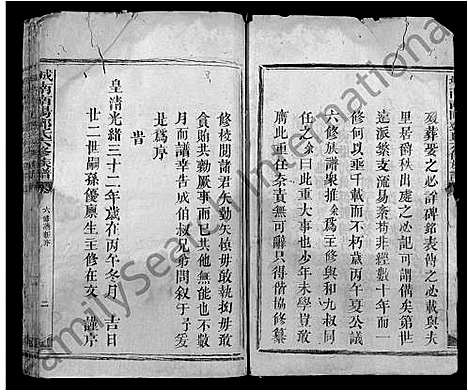 殁葬娶之必詳碑銘表傳之必載與夫
里居爵秩出處之必記可謂備矣第世
遠派繁支流易紊苟非經數十年而一
修奚以垂千載而不朽歲丙午夏公議
六修族譜眾推為主修與和九叔同
任之余曰此重大事也少年未學豈敢
當此重任奈責無可辭只得偕協修纂
修校閱諸君矢勤矢慎毋敢執拗毋敢
貪賄共勷厥事而已其他無能也不數
月而議幸告成伯叔兄弟問叙于予爰
是為序
皇清光緒三十二年歲在丙午冬月 吉日
廿二世嗣孫優廩生主修在文 謹序
城南南陽鄧氏六修族譜
六修譜新序
二
FamilySearch International